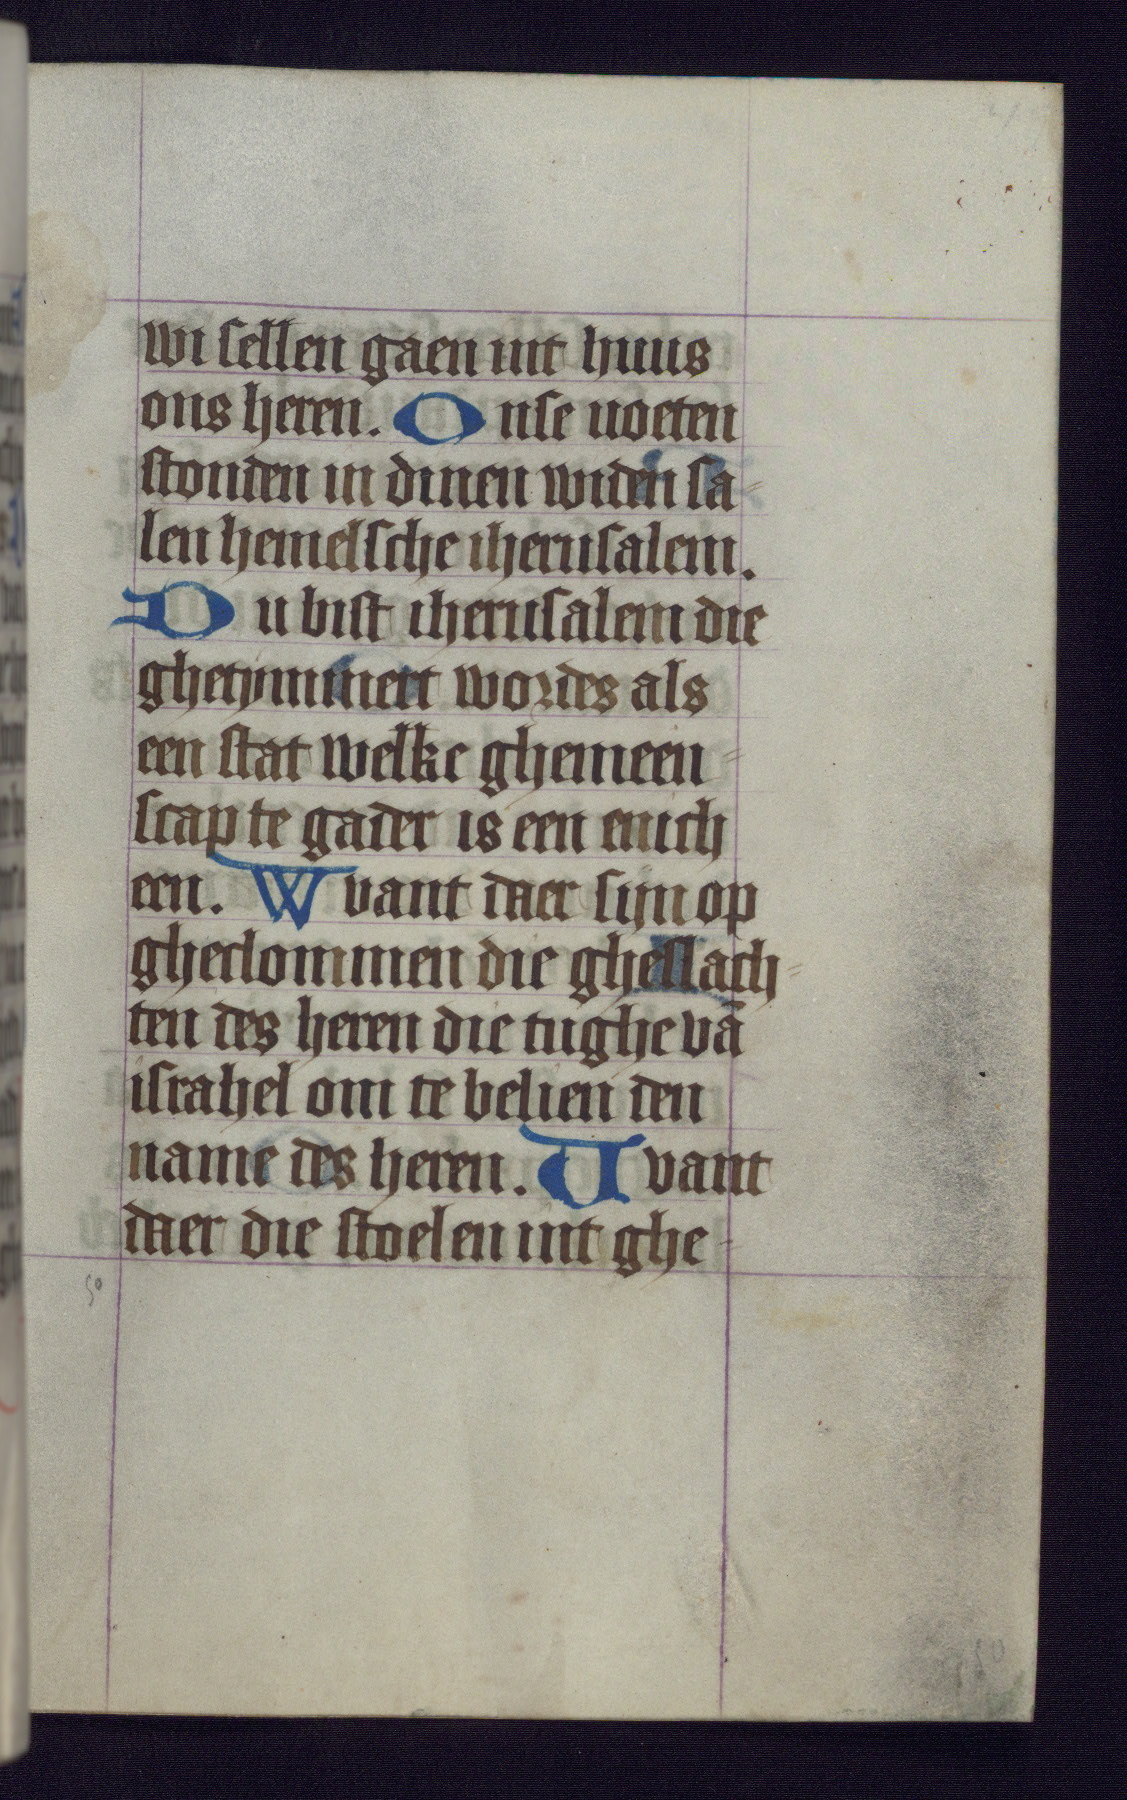 wi sellen gaen int huus
ons heren. Onse uoeten
stonden in dinen widen sa-
len hemelsche iherusalem.
Du bist iherusalem die
ghetymmert wordes als
een stat welke ghemeen-
scap te gader is een enich
een. Wvant daer sijn op
gheclommen die gheslach-
ten des heren die tughe vā
israhel om te belien den
name des heren. Uvant
daer die stoelen int ghe-
50